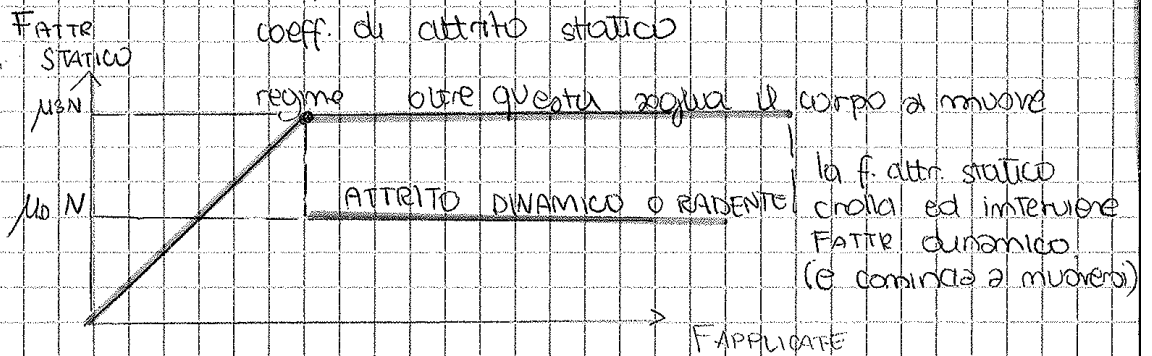 FATTR
STATICO
coeff. di attrito statico
μsN
regime oltre questa soglia il corpo si muove
μD N
ATTRITO DINAMICO O RADENTE
la f. attr. statico
crolla ed interviene
FATTR dinamico
(e comincia a muoversi)
FAPPLICATE